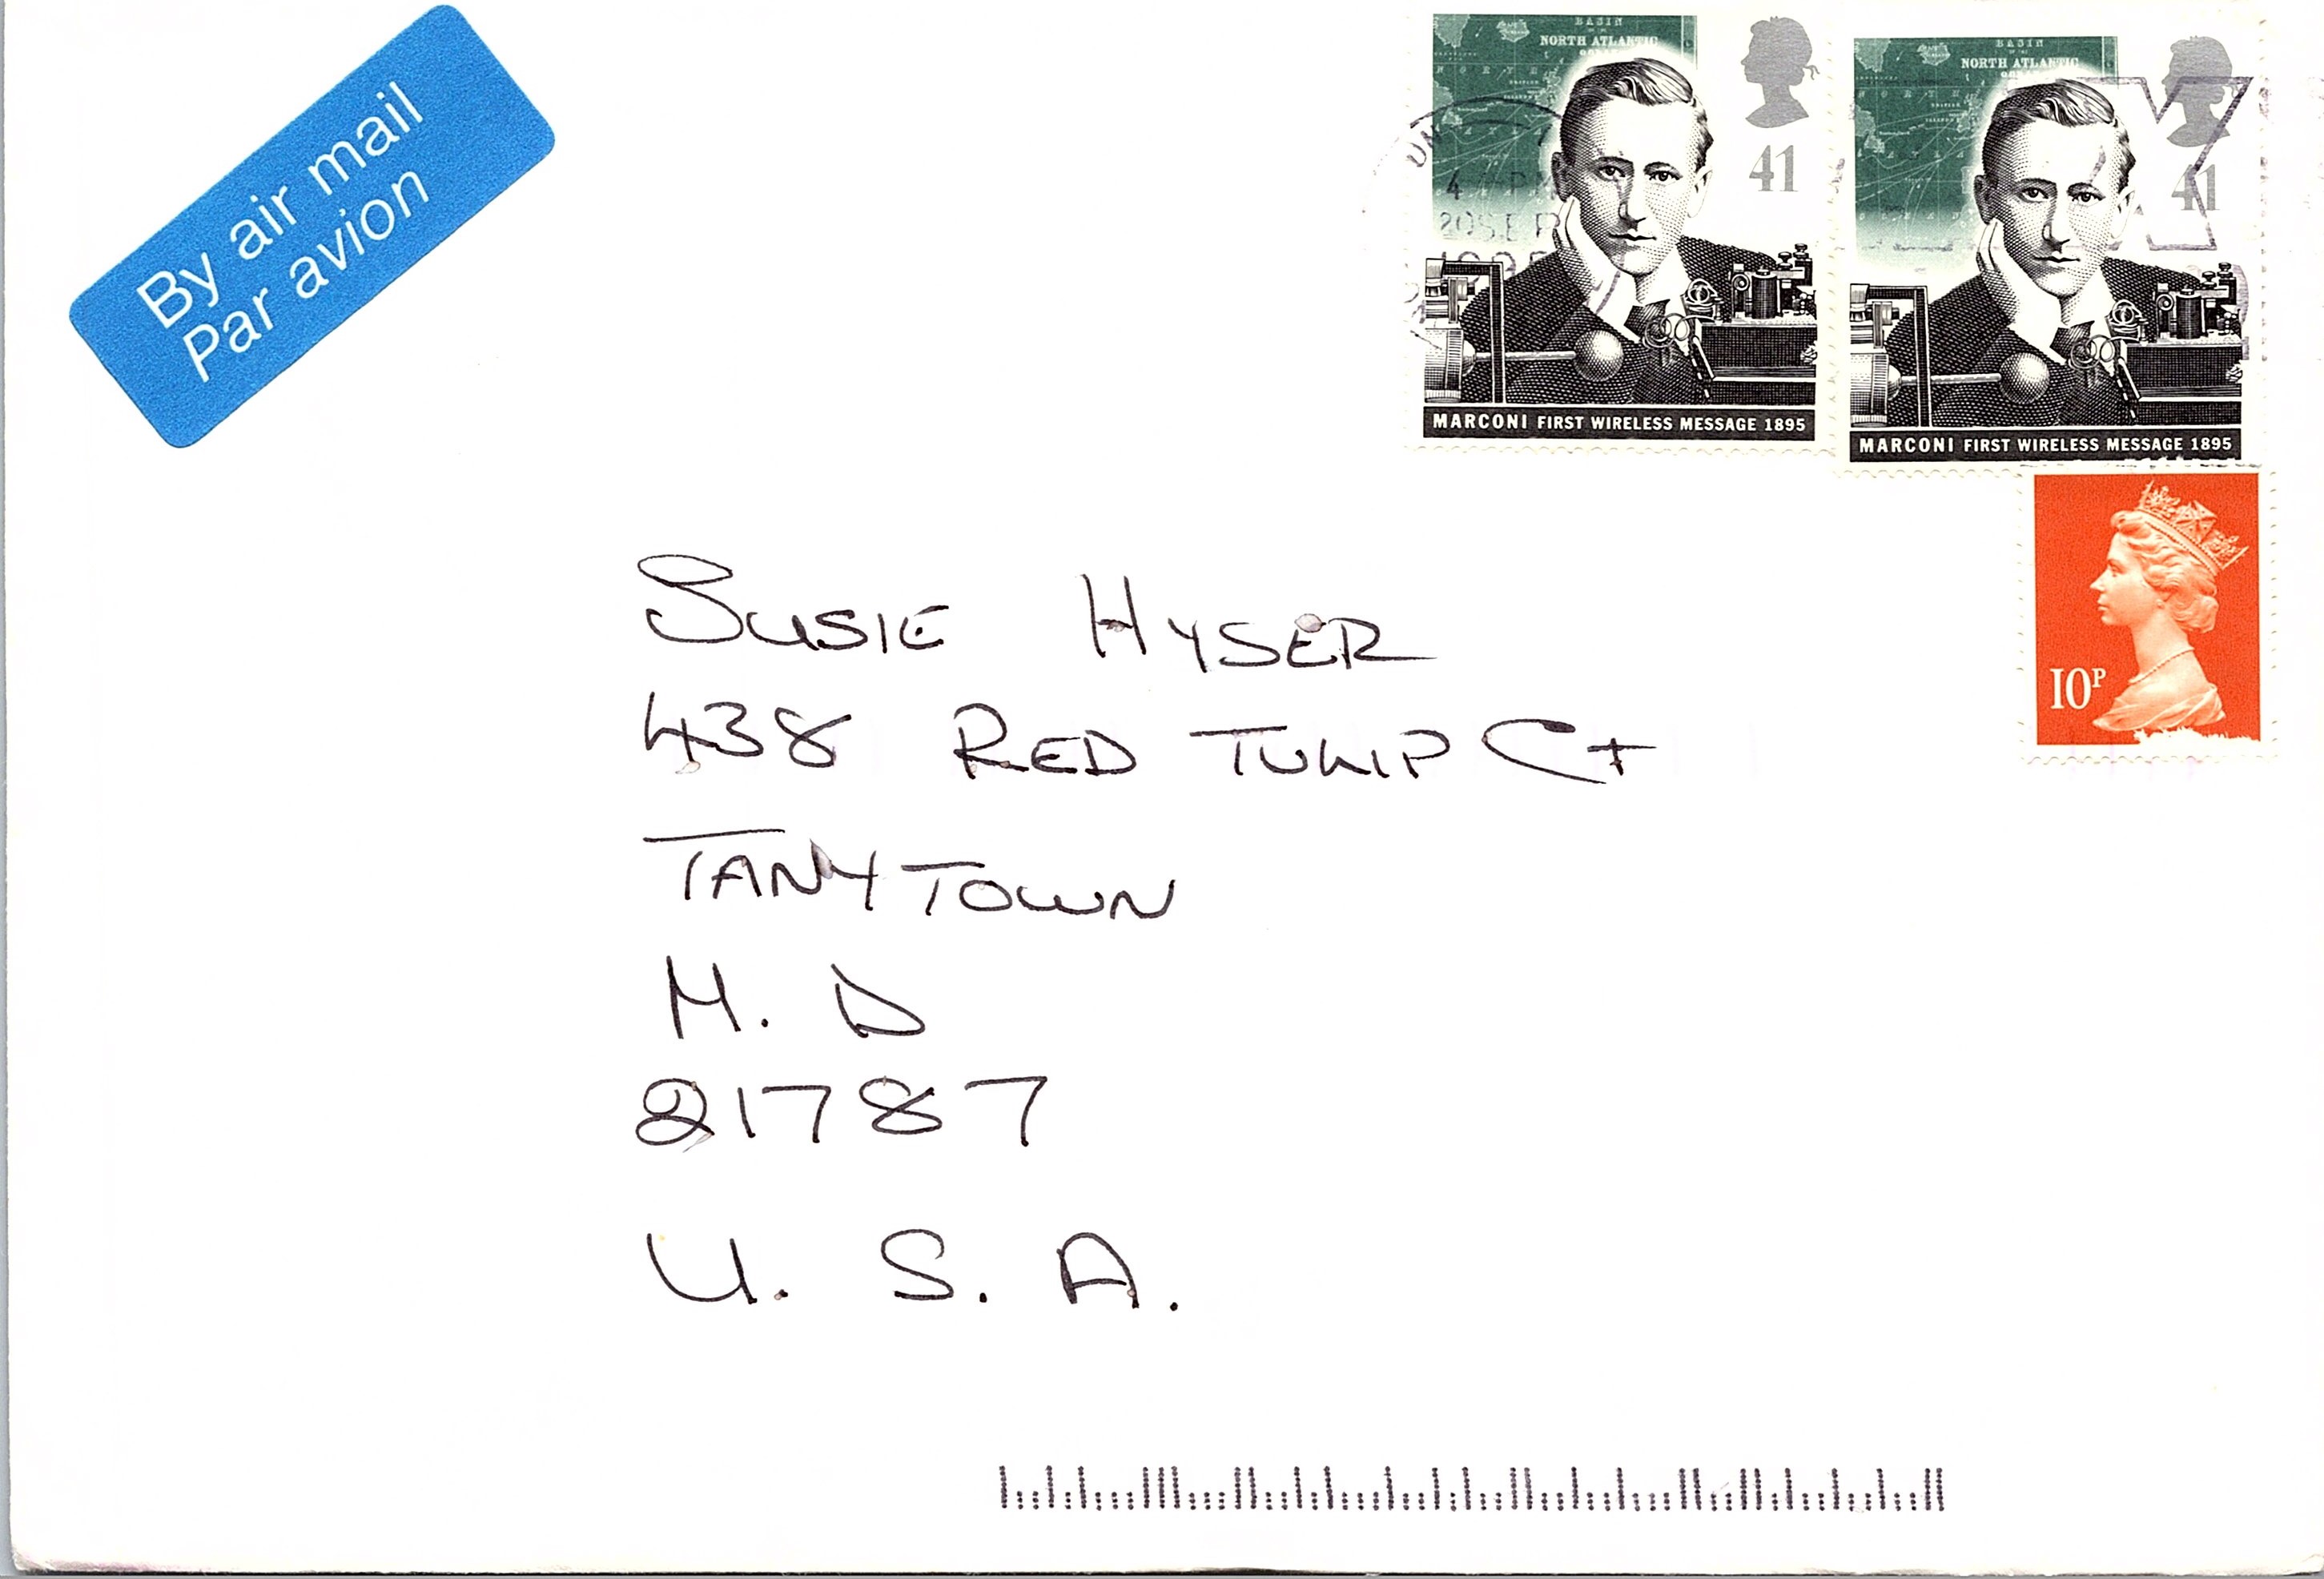 By air mail
Par avion
BASIN
NORTH ATLANTIC
41
MARCONI FIRST WIRELESS MESSAGE 1895
BASIN
NORTH ATLANTIC
41
MARCONI FIRST WIRELESS MESSAGE 1895
4 PM
20 SEP
10P
SUSIE HYSER
438 RED TULIP Ct
TANYTOWN
M. D
21787
U. S. A.